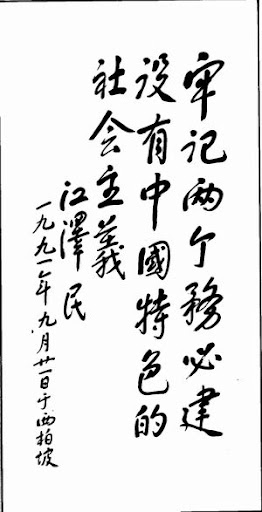 牢记两个務必建
設有中國特色的
社会主義
江澤民
一九九一年九月廿一日于西柏坡